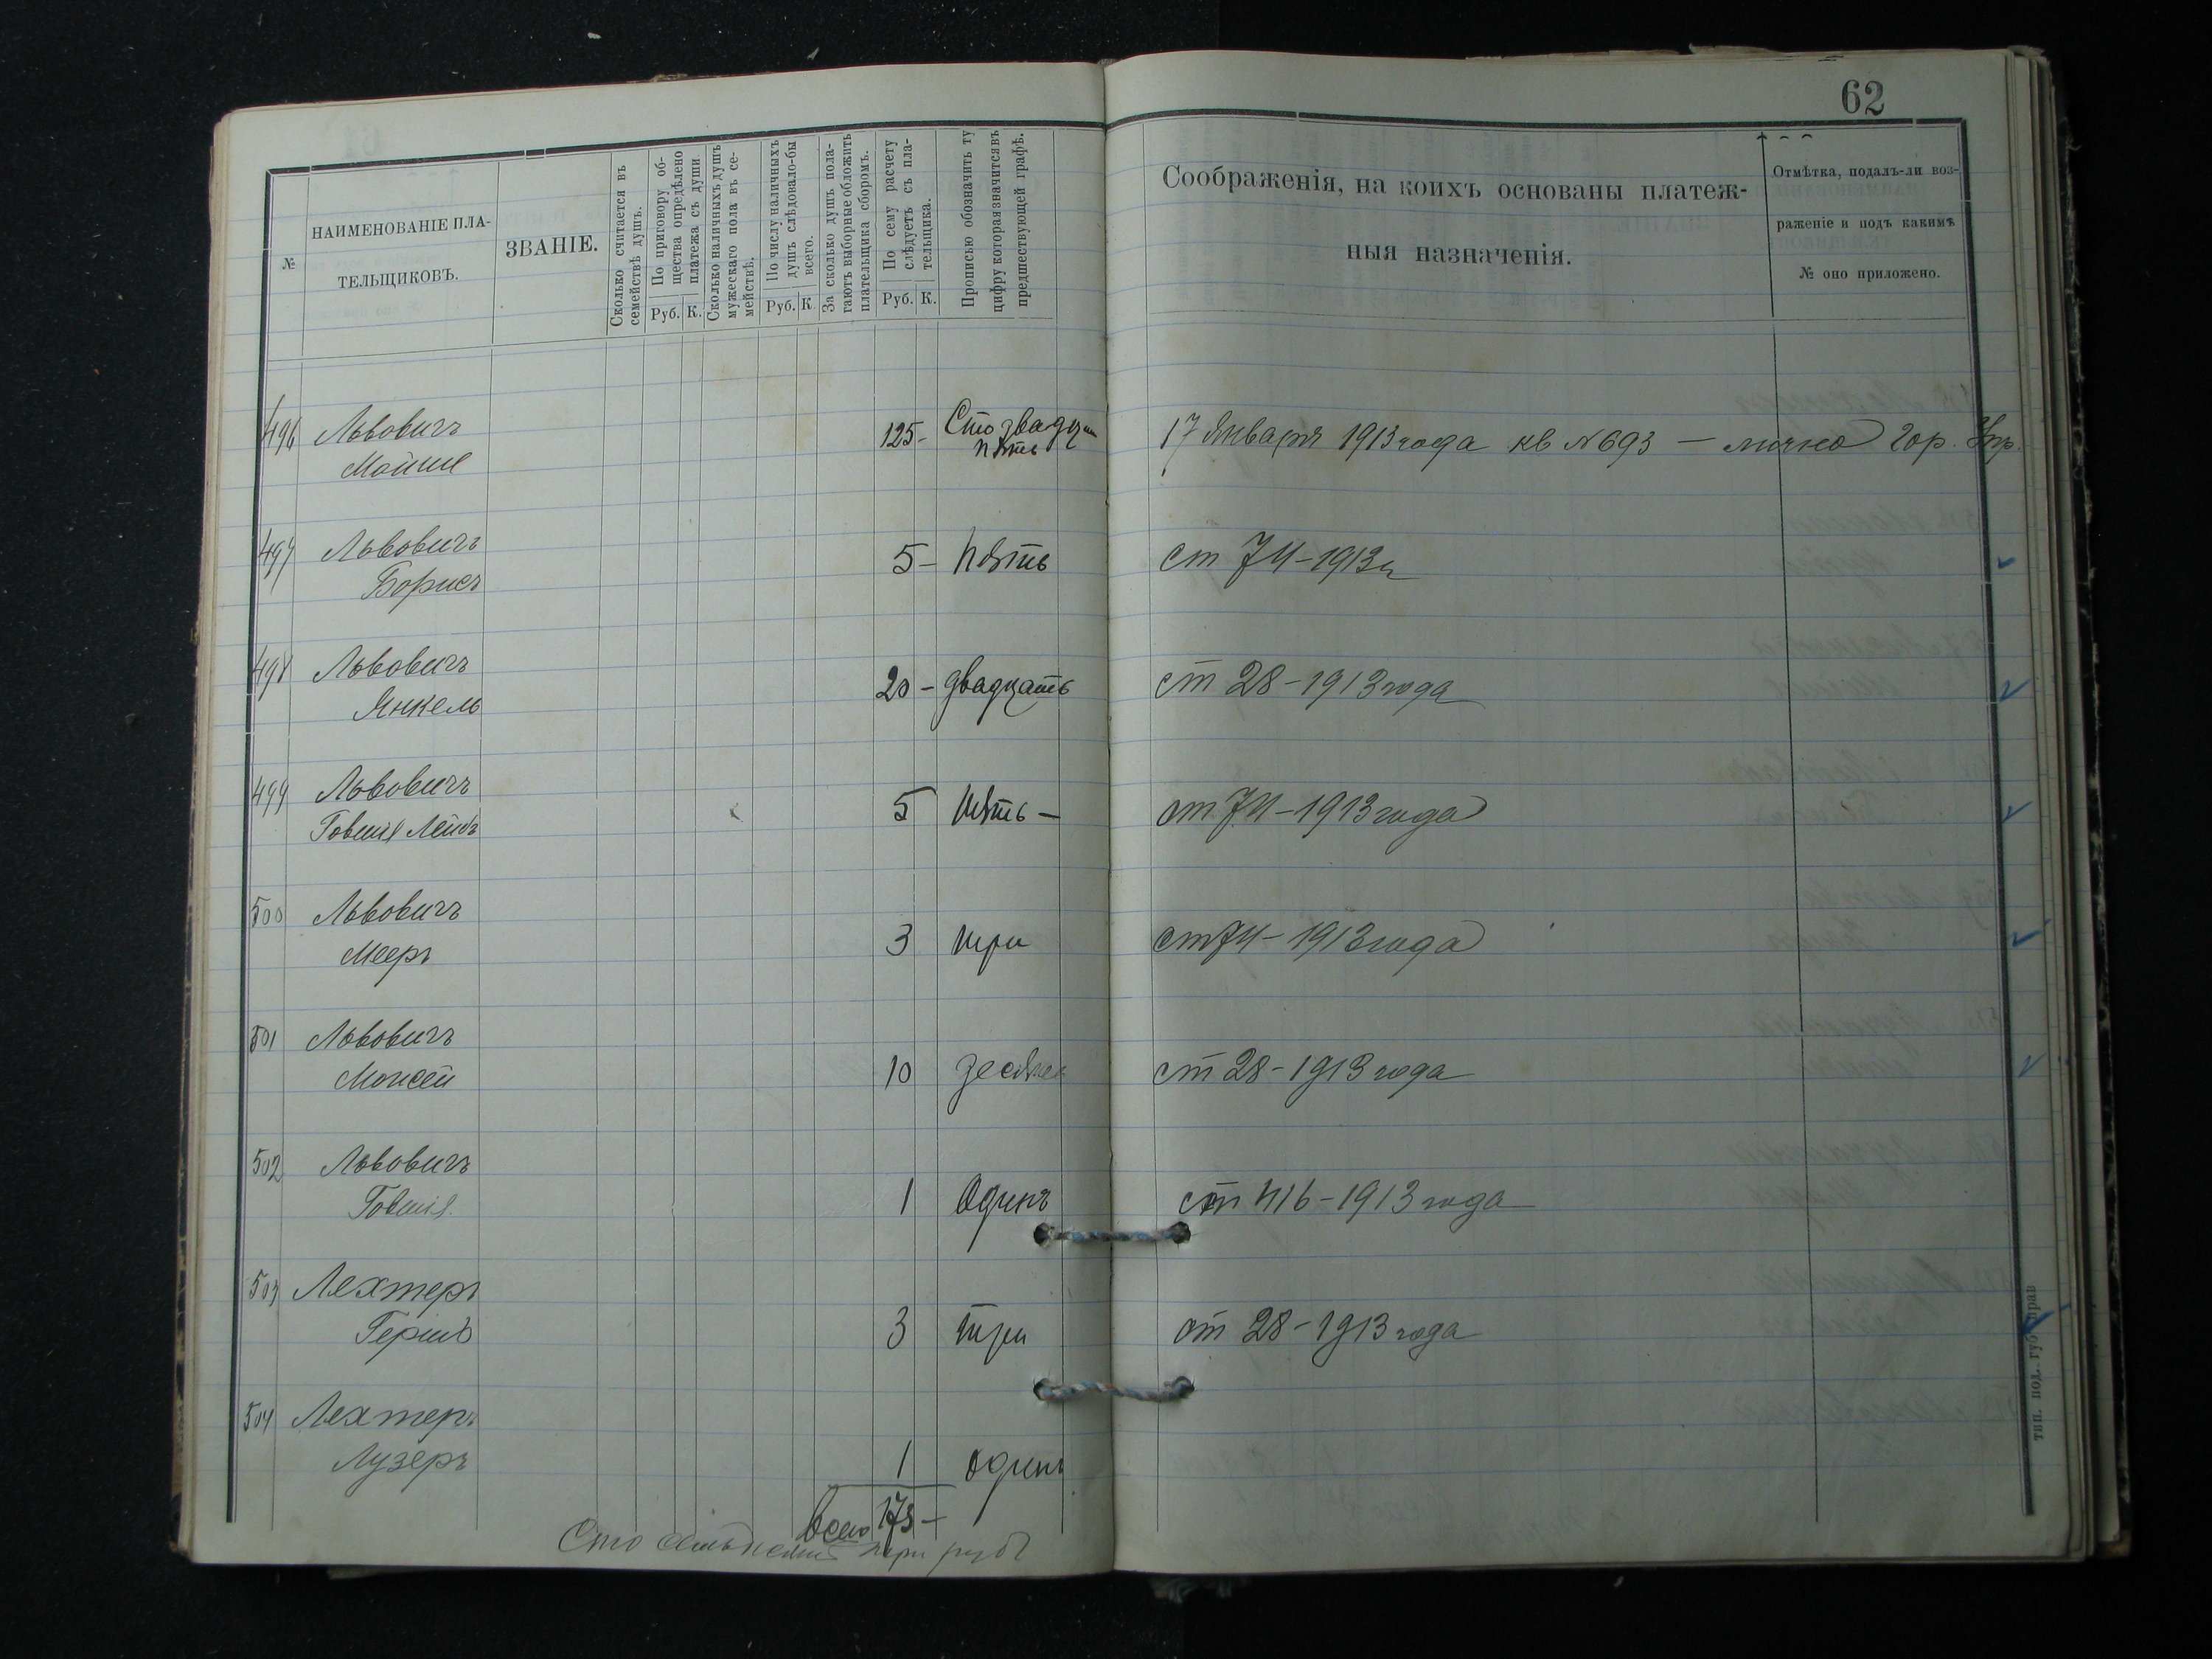 62
№
НАИМЕНОВАНІЕ ПЛА-
ТЕЛЬЩИКОВЪ.
ЗВАНІЕ.
Сколько считается въ
семействѣ душъ.
По приговору об-
щества опредѣлено
платежа съ души
Руб. К.
Сколько наличныхъ душъ
мужескаго пола въ се-
мействѣ.
По числу наличныхъ
душъ слѣдовало-бы
всего.
Руб. К.
За сколько душъ пола-
гаютъ выборные обложить
плательщика сборомъ.
По сему расчету
слѣдуетъ съ пла-
тельщика.
Руб. К.
Прописью обозначить ту
цифру которая значится въ
предшествующей графѣ.
Соображенія, на коихъ основаны платеж-
ныя назначенія.
Отмѣтка, подалъ-ли воз-
раженіе и подъ какимъ
№ оно приложено.
496 Львовичъ
Мойше 125- Сто двадцать
пять 17 Января 1913 года кв № 693 — лично Гор. Упр.
497 Львовичъ
Борисъ 5- пять ст 74-1913 г
498 Львовичъ
Янкель 20- двадцать ст 28-1913 года
499 Львовичъ
Говшія Лейбъ 5 пять — ст 74-1913 года
500 Львовичъ
Мееръ 3 три ст 74-1913 года
501 Львовичъ
Моисей 10 десять ст 28-1913 года
502 Львовичъ
Говшія 1 Одинъ ст 416-1913 года
503 Лехтеръ
Гершъ 3 три ст 28-1913 года
504 Лехтеръ
Лузеръ 1 одинъ
Всего 173-
Сто семьдесятъ три руб
тип. под. губ. прав